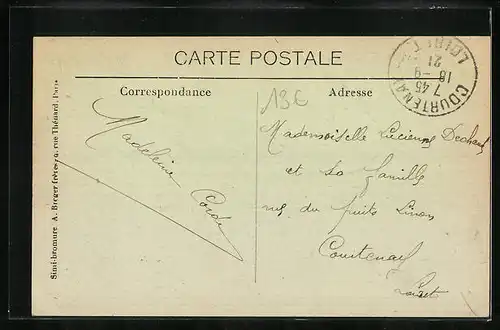 CARTE POSTALE
Correspondance
Adresse
13€
COURTENAY
LOIRET
7 45
18 -9
21
Madeleine
Mademoiselle Lucienne
et sa famille
rue du puits
Courtenay
Loiret
Simi-bromure A. Breger frères, 9, rue Thénard, Paris